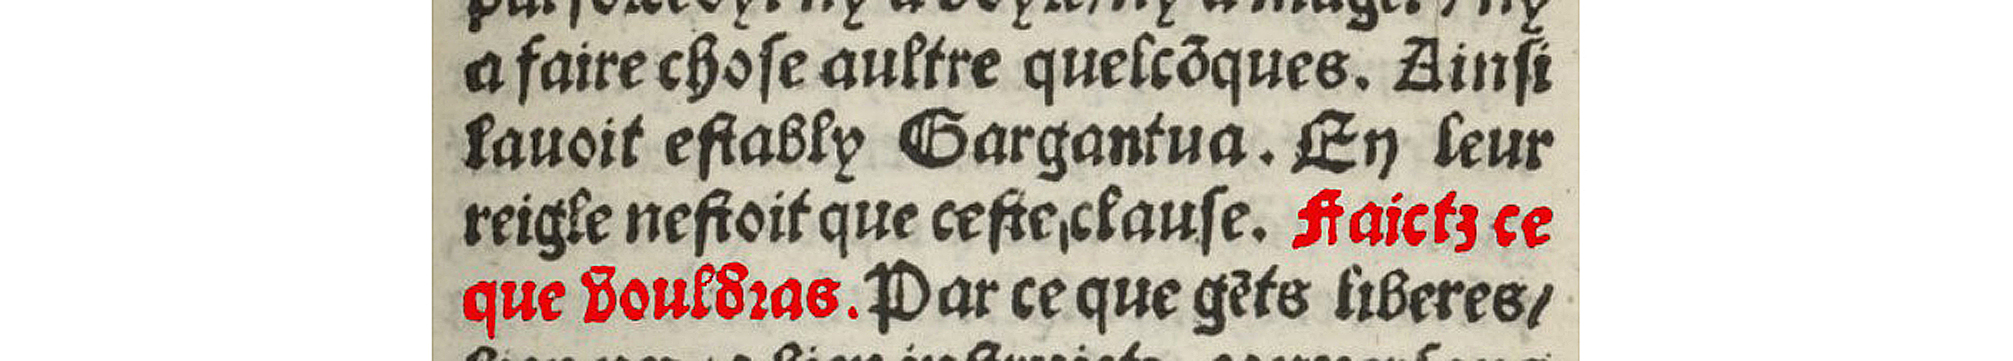 a faire choſe aultre quelcõques. Ainſi
lauoit eſtably Gargantua. En leur
reigle neſtoit que ceſte clauſe. Faictz ce
que vouldras. Par ce que gẽts liberes/